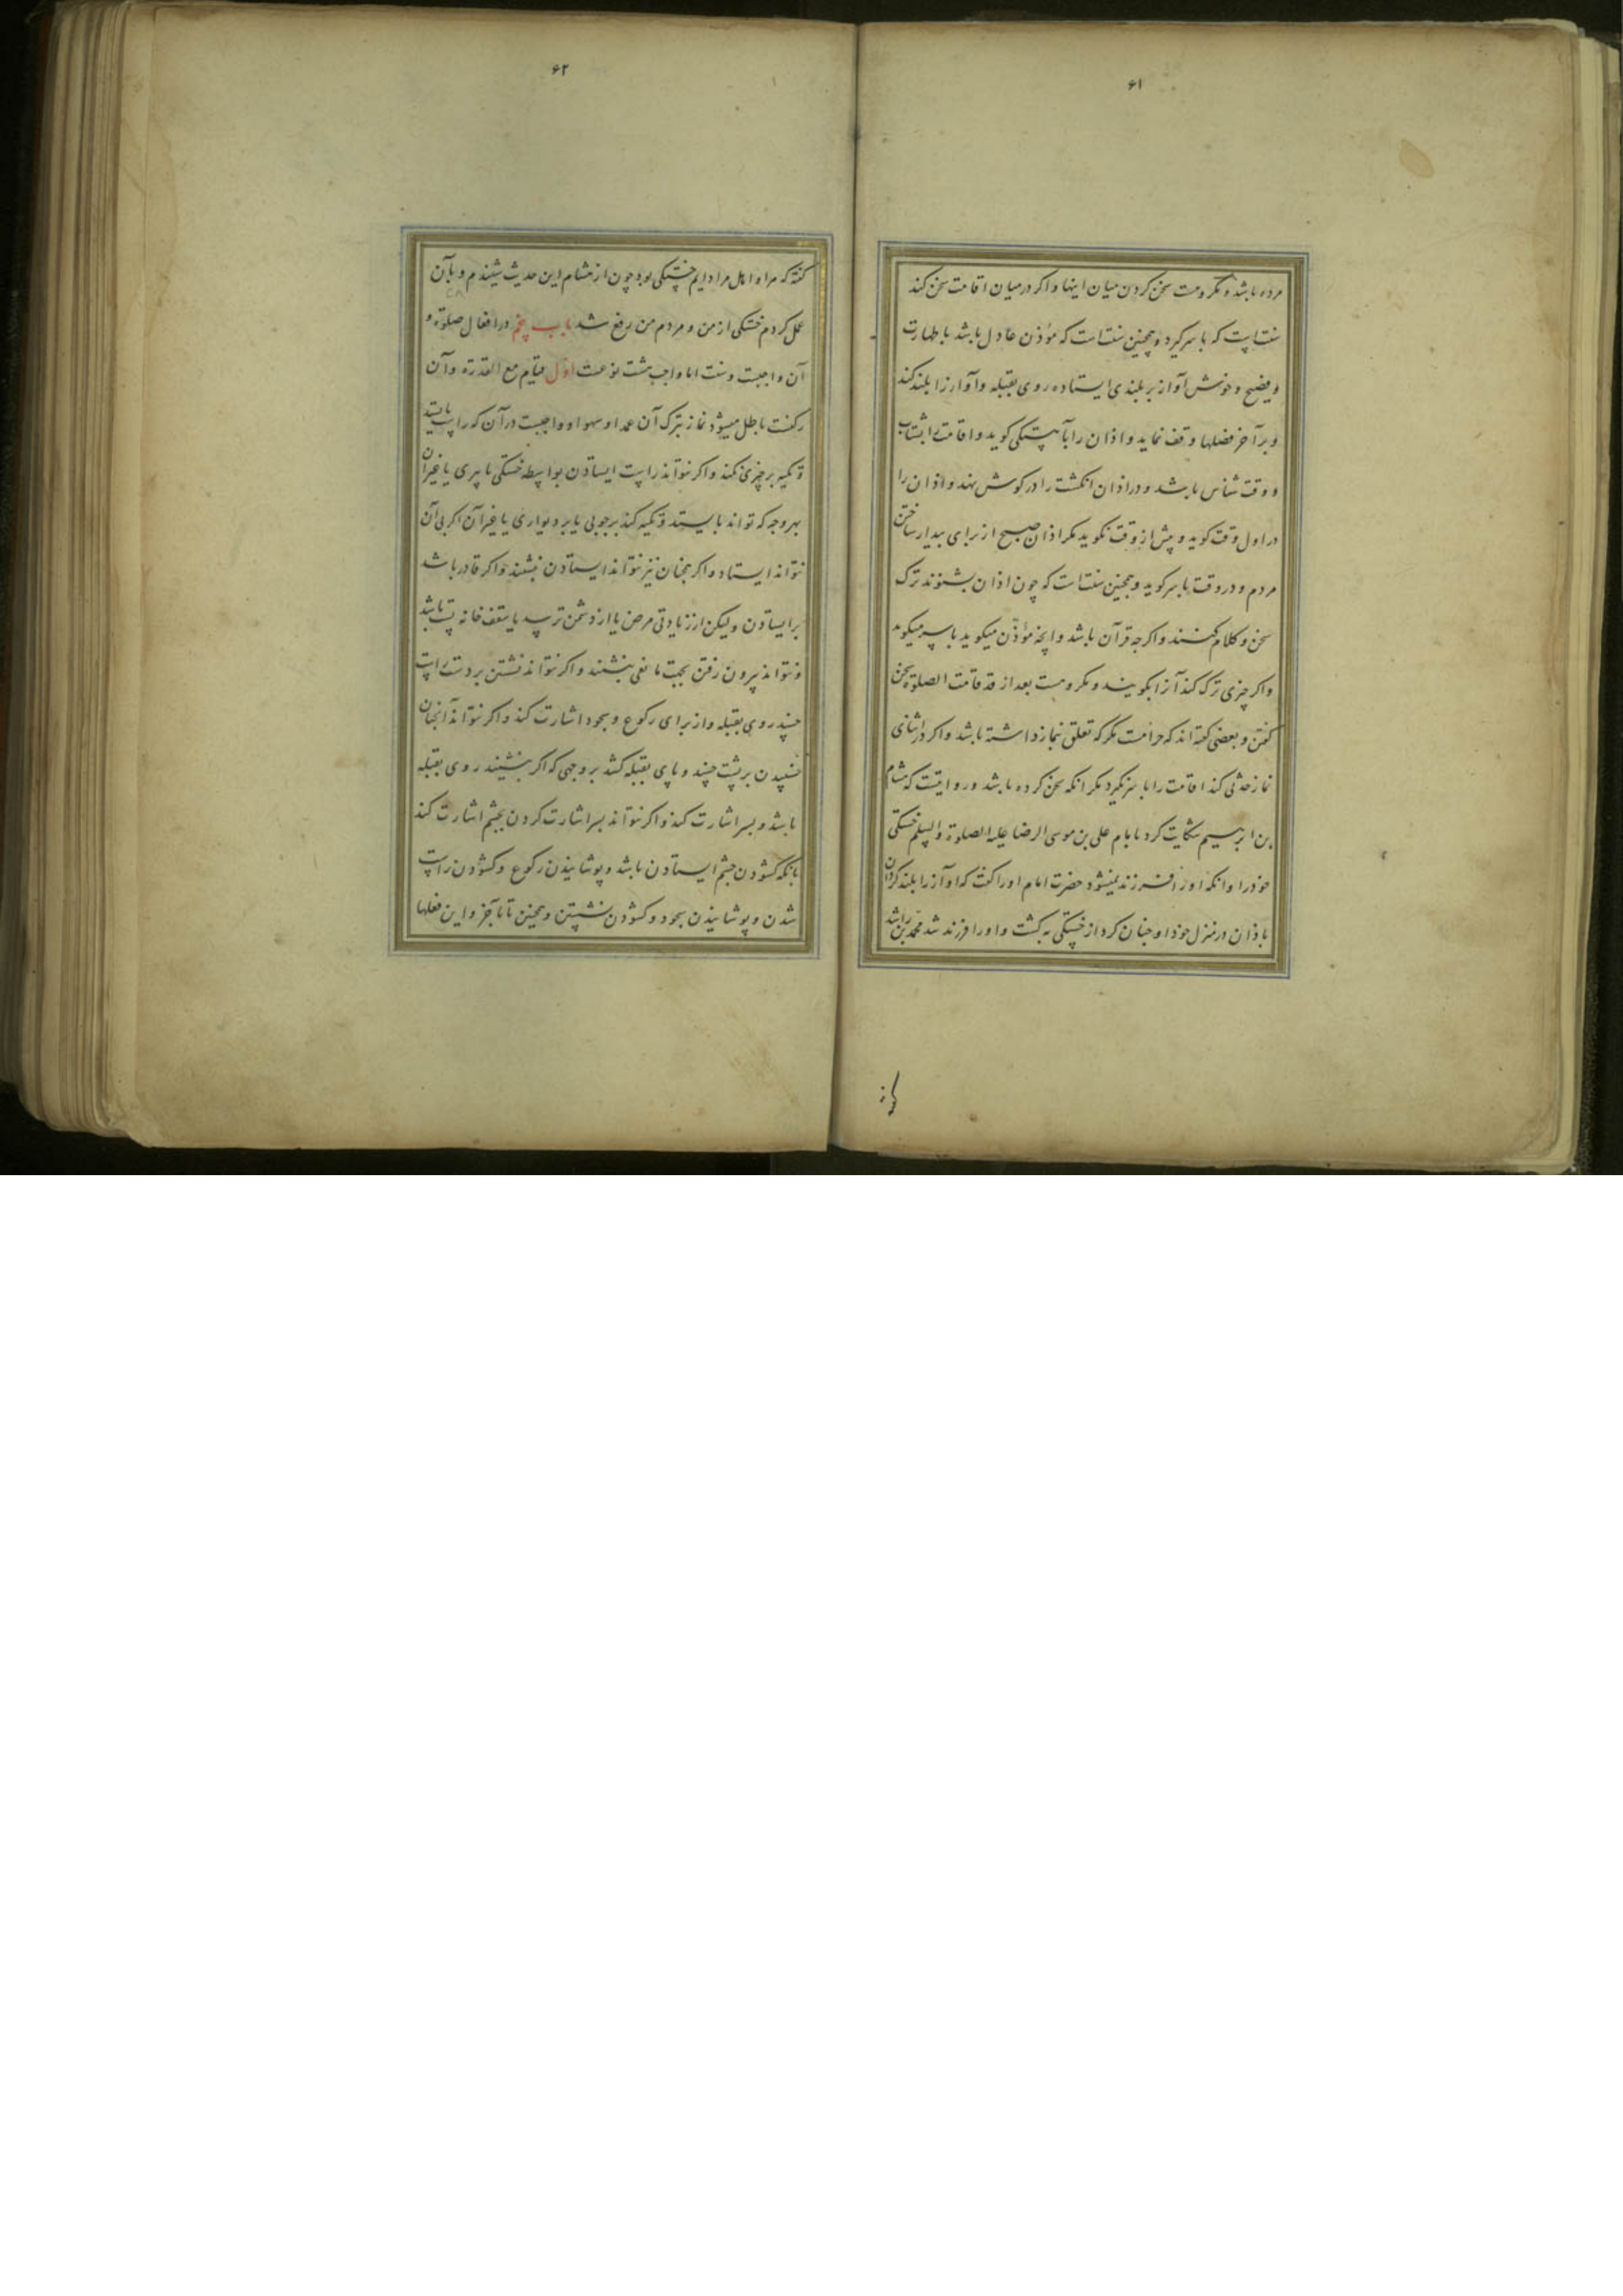 ۶۱
مرده باشد و مکروهست سخن کردن میان اینها و اکر در میان اقامت سخن کند
سنتست که با سر کیرد و همچنین سنت است که مؤذن عادل باشد با طهارت
و فصیح و خوش آواز بر بلندی ایستاده روی بقبله و آواز را بلند کند
و بر آخر فصلها وقف نماید و اذان را بآهستکی کوید و اقامت را بشتاب
و وقت شناس باشد و در اذان انکشت را در کوش نهد و اذان را
در اول وقت کوید و پیش از وقت نکوید مکر اذان صبح از برای بیدار ساختن
مردم و در وقت با سر کوید و همچنین سنت است که چون اذان بشنوند ترک
سخن و کلام کنند و اکرچه قرآن باشد و انچه مؤذّن میکوید با سر میکوید
و اکر چیزی ترک کند آنرا بکویند و مکروهست بعد از قد قامت الصلوة سخن
کفتن و بعضی کفته اند که حرامست مکر که تعلق بنماز داشته باشد و اکر در اثنای
نماز حدثی کند اقامت را با سر نکیرد مکر انکه سخن کرده باشد و روایتست که هشام
بن ابرهیم شکایت کرد بامام علی بن موسی الرضا علیه الصلوة والسلم خستکی
خود را و انکه او را فرزند نمیشود حضرت امام او را کفت که آواز را بلند کردان
باذان در منزل خود او چنان کرد از خستکی به کشت و او را فرزند شد محمد بن راشد
کفته
۶۲
کفته که مرا و اهل مرا دایم خستکی بود چون از هشام این حدیث شنیدم و بآن
عمل کردم خستکی از من و مردم من رفع شد باب پنجم در افعال صلوة و
آن واجبست و سنت اما واجب هشت نوعست اول قیام مع القدرة و آن
رکنست باطل میشود نماز بترک آن عمدا و سهوا و واجبست در آن که راست بایستد
و تکیه بر چیزی نکند و اکر نتواند راست ایستادن بواسطه خستکی یا پیری یا غیر آن
بهر وجه که تواند بایستد و تکیه کند بر چوبی یا بر دیواری یا غیر آن اکر بی آن
نتواند ایستاد و اکر همچنان نیز نتواند ایستادن بنشیند و اکر قادر باشد
بر ایستادن و لیکن از زیادتی مرض یا از دشمن ترسد یا سقف خانه پست باشد
و نتواند بیرون رفتن بجهت مانعی بنشیند و اکر نتواند نشستن بر دست راست
خسبد روی بقبله و از برای رکوع و سجود اشارت کند و اکر نتواند آنچنان
خسبیدن بر پشت خسبد و پای بقبله کشد بر وجهی که اکر بنشیند روی بقبله
باشد و بسر اشارت کند و اکر نتواند بسر اشارت کردن بچشم اشارت کند
بانکه کشودن چشم ایستادن باشد و پوشانیدن رکوع و کشودن راست
شدن و پوشانیدن سجود و کشودن نشستن و همچنین تا بآخر و این فعلها